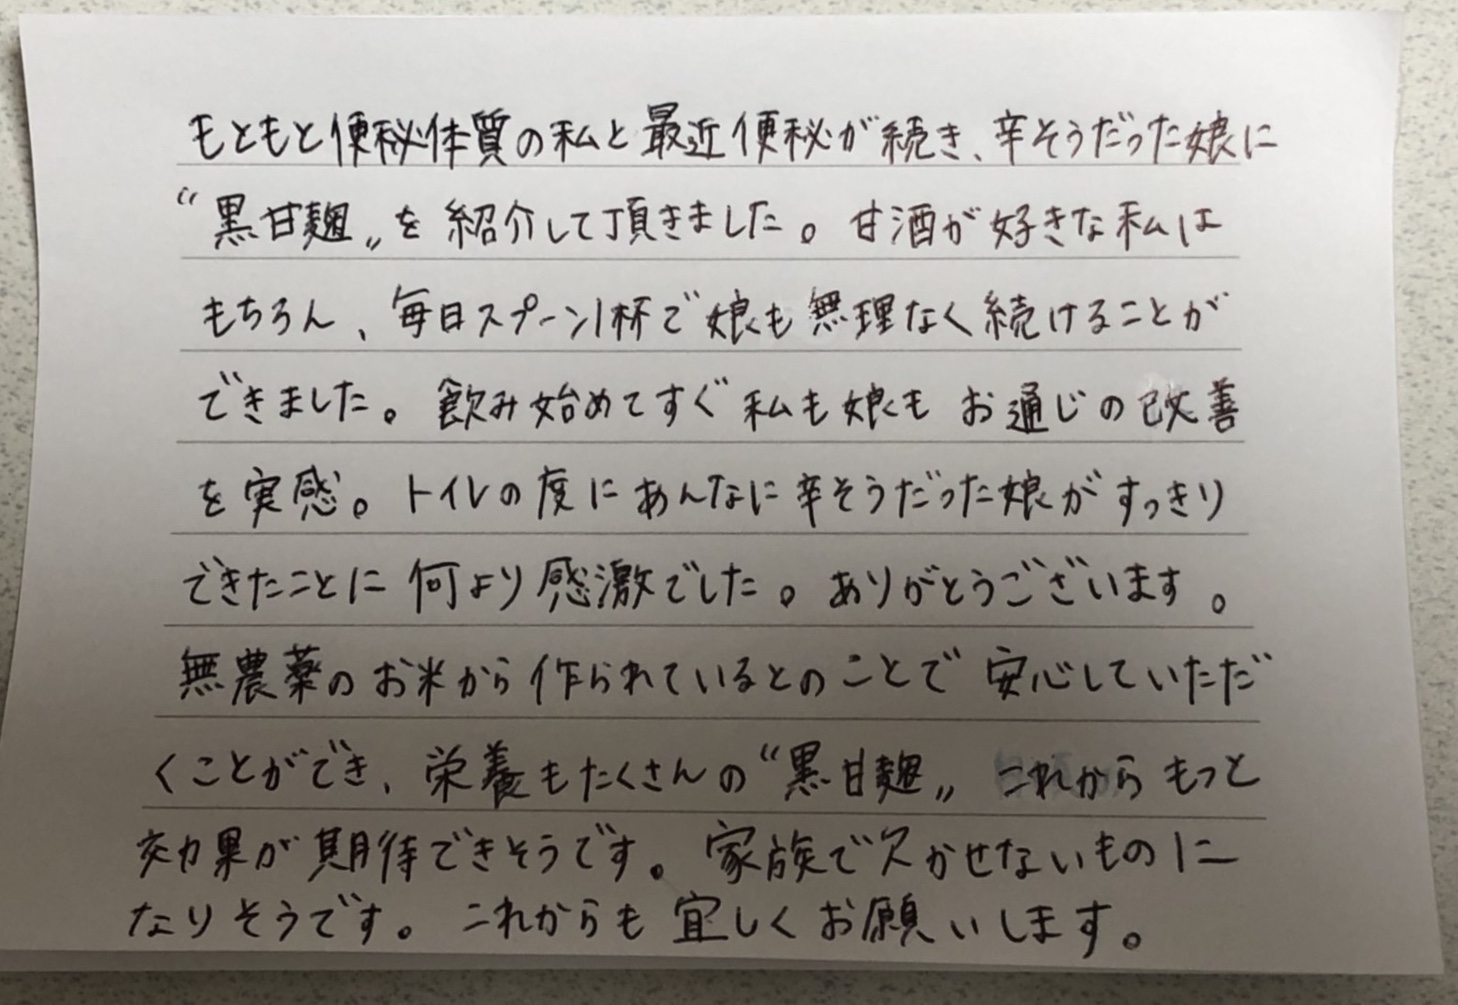 もともと便秘体質の私と最近便秘が続き、辛そうだった娘に
“黒甘麹„を紹介して頂きました。甘酒が好きな私は
もちろん、毎日スプーン1杯で娘も無理なく続けることが
できました。飲み始めてすぐ私も娘もお通じの改善
を実感。トイレの度にあんなに辛そうだった娘がすっきり
できたことに何より感激でした。ありがとうございます。
無農薬のお米から作られているとのことで安心していただ
くことができ、栄養もたくさんの“黒甘麹„これからもっと
効果が期待できそうです。家族で欠かせないものに
なりそうです。これからも宜しくお願いします。